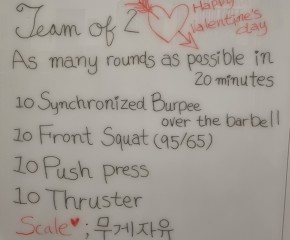 Team of 2
Happy
Valentine's
day
As many rounds as possible in
20 minutes
10 Synchronized Burpee
over the barbell
10 Front Squat (95/65)
10 Push press
10 Thruster
Scale♥ ; 무게자유